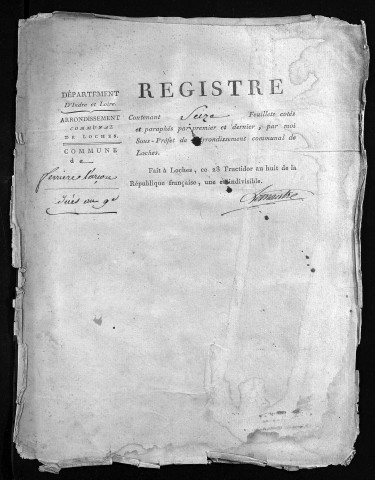 DÉPARTEMENT
D'Indre et Loire.
ARRONDISSEMENT
COMMUNAL
DE LOCHES.
COMMUNE
de
ferrière Larçon
Décès an 9e
REGISTRE
Contenant Seize Feuillets cotés
et paraphés par premier et dernier, par moi
Sous-Préfet de l'arrondissement communal de
Loches.
Fait à Loches, ce 28 Fructidor an huit de la
République française, une et indivisible.